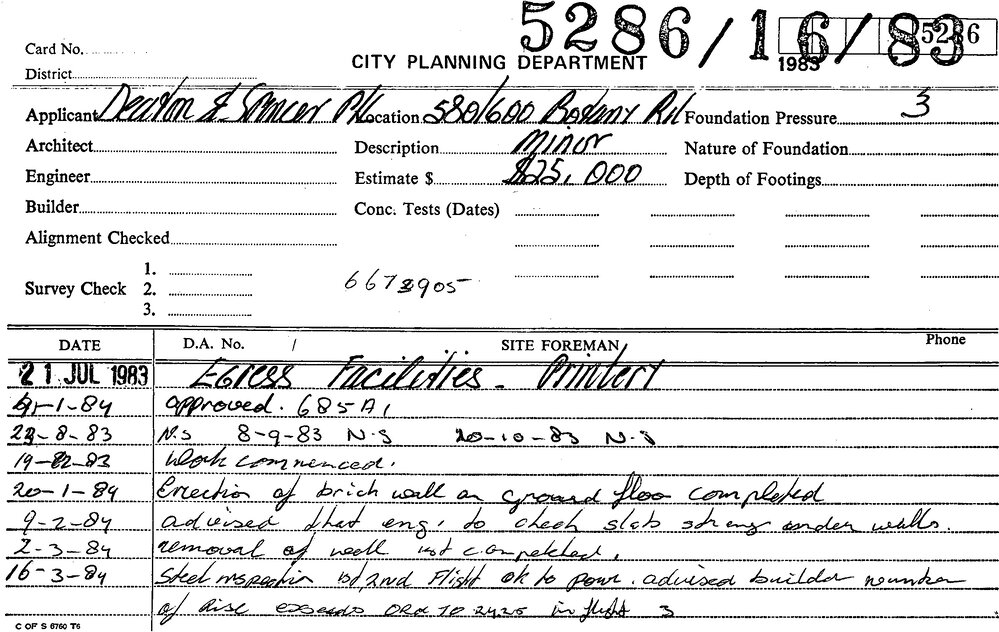 5286/16/83
5286
1983
Card No.
CITY PLANNING DEPARTMENT
District
Applicant Deaton & Spencer P/L Location 580/600 Botany Rd Foundation Pressure 3
Architect Description Minor Nature of Foundation
Engineer Estimate $ $25,000 Depth of Footings
Builder Conc. Tests (Dates)
Alignment Checked
1.
Survey Check 2. 6673905
3.
DATE D.A. No. / SITE FOREMAN Phone
21 JUL 1983 Egress Facilities - Printery
-1-84 approved. 685A1
-8-83 N.S 8-9-83 N.S 20-10-83 N.S
19-12-83 Work commenced.
20-1-84 Erection of brick wall on ground floo completed
9-2-84 advised that eng. to check slab strong under walls.
2-3-84 removal of wall not completed.
16-3-84 Steel inspection 1st, 2nd Flight ok to pour. advised builder number
of Rise exceeds ORD TO in flight 3
C OF S 6760 T6